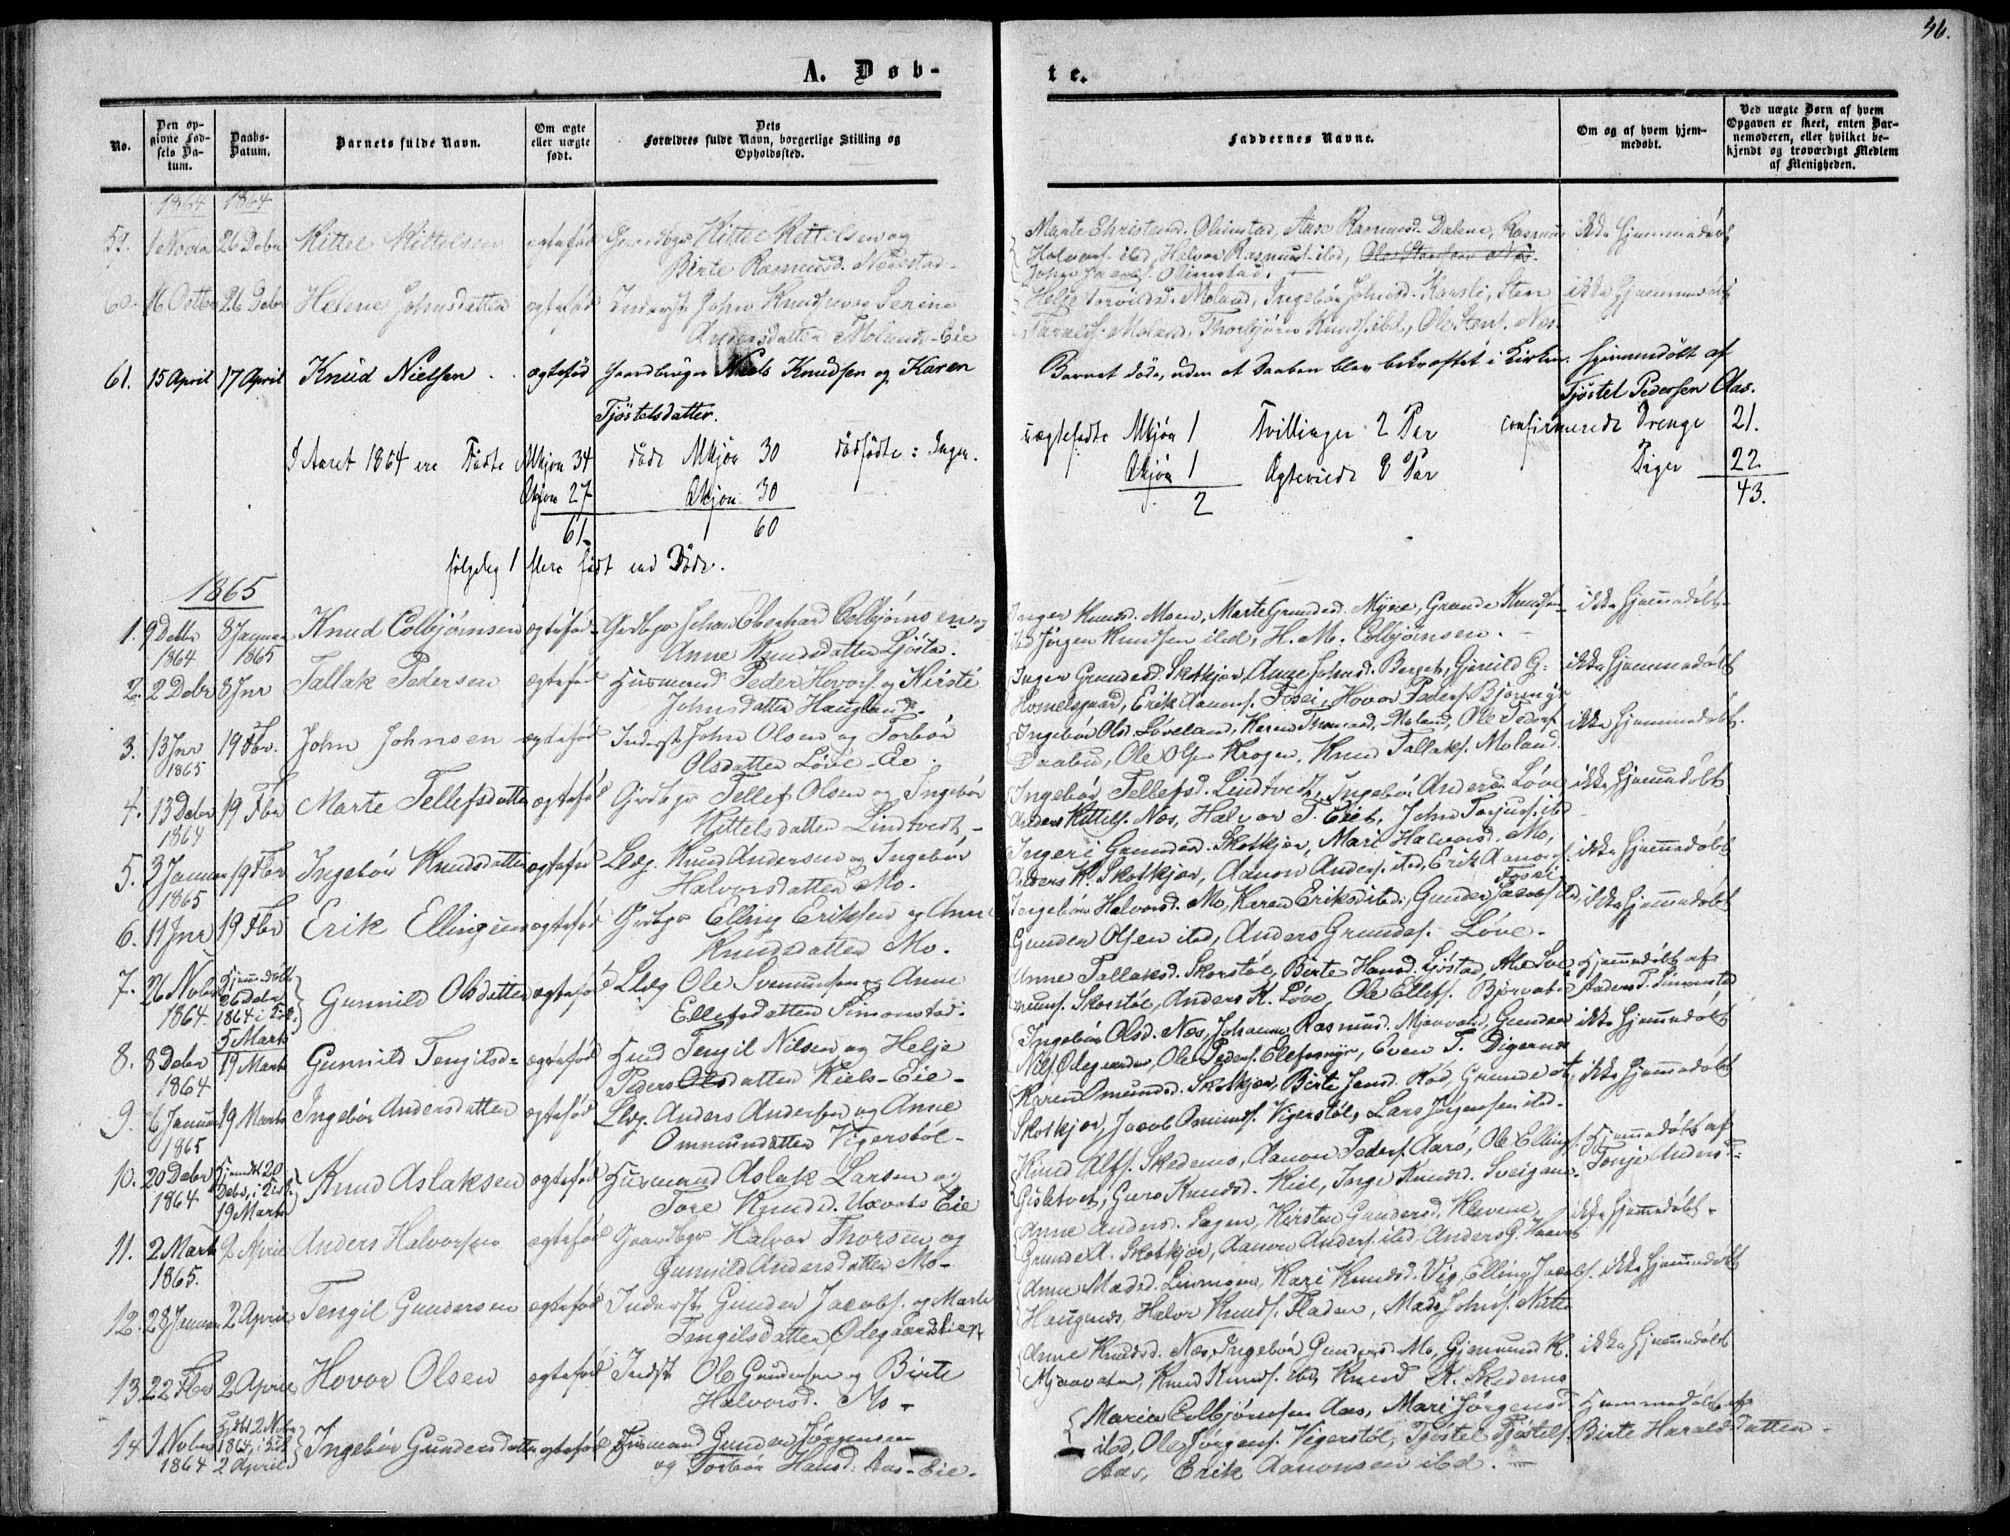 46.
A. Døb-
te.
No.
Den opgivne Fødsels Datum.
Daabs-Datum.
Barnets fulde Navn.
Om ægte eller uægte født.
Dets Forældres fulde Navn, borgerlige Stilling og Opholdssted.
Faddernes Navne.
Om og af hvem hjemmedøbt.
Ved uægte Børn af hvem Opgaven er skeet, enten Barnemoderen, eller hvilket bekjendt og troværdigt Medlem af Menigheden.
1864 1864
59. 1 Novbr 26 Debr Kittel Kittelsen ægtefød Gaardbgr Kittel Kittelsen og
Birte Rasmusd. Nærestad
Marte Christensd. Olimstad, Aase Rasmusd. Dalene, Rasmus
Halvors. ibd, Halvor Rasmus. ibd,
Olimstad.
ikke hjemmedøbt
60. 16 Octbr 26 Debr Helene Johnsdatter ægtefød Inderst John Knudsen og Serine
Andersdatter Molands-Eie
Moland, Ingebør Johnsd. Sten
Moland, Thorbjørn Knuds. ibd, Ole Stens. Næs.
ikke hjemmedøbt
61. 15 April 17 April Knud Nielsen ægtefød Gaardbruger Niels Knudsen og Karen
Tjøstelsdatter.
Barnet døde, uden at Daaben blev bekræftet i Kirken.
hjemmedøbt af
Tjøstel Pedersen Aas.
I Aaret 1864 ere Fødte Mkjøn 34 døde Mkjøn 30 dødfødte: Ingen.
Qkjøn 27 Qkjøn 30
61 60
følgelig 1 flere født end Døde.
uægtefødte Mkjøn 1 Tvillinger 2 Par confirmerede Drenge 21.
Qkjøn 1 Ægteviede 8 Par Piger 22
2 43.
1865
1. 9 Debr 1864 8 Januar 1865 Knud Colbjørnsen ægtefød Grdbgr Johan Eberhard Colbjørnsen og
Anne Knudsdatter Ljøstad.
Inger Knudsd. Moen, Marte Grundesd. Myre, Grunde Knudsen
ibd Jørgen Knudsen ibd, H. M. Colbjørnsen.
ikke hjemmedøbt
2. 2 Debr 8 Jnr Tallak Pedersen ægtefød Husmand Peder Hovors. og Kirsti
Johnsdatter Haugland.
Inger Grundesd. Skotkjær, Anne Johnsd. Berget, Gjerulf G.
Homelsgaard, Erik Aanons. Fosei, Hovor Peders. Bjørnnyr
ikke hjemmedøbt
3. 13 Jnr 1865 19 Fbr. John Johnsen ægtefød Inderst John Olsen og Torbør
Olsdatter Løve-Eie.
Ingebør Olsd. Løveland, Karen Moland, Ole Peders.
Daabu, Ole Olsen Krogen, Knud Tallaks. Moland.
ikke hjemmedøbt.
4. 13 Debr 1864 19 Fbr Marte Tellefsdatter ægtefød Grdbgr Tellef Olsen og Ingebør
Kittelsdatter Lindtveit
Ingebør Tellefsd. Lindtveit, Ingebør Andersd. Løve
Anders Kittels. Næs, Halvor T. Eiet, John Terjus. ibd
ikke hjemmedøbt
5. 3 Januar 1865 19 Fbr Ingebør Knudsdatter ægtefød Lldg. Knud Andersen og Ingebør
Halvorsdatter Mo.
Ingeri Grundesd. Skotkjær, Mari Halvorsd. Mo,
Anders K. Skotkjær, Aanon Anders. ibd, Erik Aanons.
Fosei
ikke hjemmedøbt
6. 11 Jnr 19 Fbr Erik Ellingsen ægtefød Grdbgr Elling Eriksen og Anne
Knudsdatter Mo.
Ingebør Halvorsd. Mo, Karen Eriksd ibd, Gunder Jacobs. ibd,
Gunder Olsen ibd, Anders Grundes. Løve.
ikke hjemmedøbt
7. 26 Novbr 1864 Hjemmedøbt 26 Debr 1864 i Kirk. 5 Marts Gunnild Olsdatter ægtefød Lldg Ole Svenumsen og Anne
Ellefsdatter Simonstad.
Anne Tallaksd. Skorstøl, Birte Hansd. Ljøstad, Ole Sve-
nums. Skorstøl, Anders K. Løve, Ole Ellefs. Bjorvatn
Hjemmedøbt af
Anders T. Simonstad
8. 8 Debr 1864 19 Marts Gunnild Tengilsd. ægtefød Hmd Tengil Nilsen og Helje
Pedersdatter Kiels-Eie
Ingebør Olsd. Næs, Johanne Rasmusd. Mjaavatn, Gunder
Nils. Ødegaarden, Ole Peders. Elefsmyr, Even T. Digernæs
ikke hjemmedøbt
9. 6 Januar 1865 19 Marts Ingebør Andersdatter ægtefød Lldg. Anders Andersen og Anne
Ommundatter Vigerstøl
Karen Omundsd. Skotkjær, Birte Jensd. Rød, Grunde A.
Skotkjær, Jacob Omunds. Vigerstøl, Lars Jørgensen ibd.
ikke hjemmedøbt
10. 20 Debr 1864 Hjemdbt 20 Debr, i Kirk. 19 Marts Knud Aslaksen ægtefød Husmand Aslak Larsen og
Tore Knudsd. Uxvats Eie
Knud Alfs. Skedemo, Aanon Peders. Aarø, Ole Ellings.
Gisletvet, Guro Knudsd. Kiel, Inge Knudsd. Sveigane.
Hjemmedøbt af
Tonje Andersd.
11. 2 Mart 1865. 2 April Anders Halvorsen ægtefød Gaardbgr Halvor Thorsen og
Gunnild Andersdatter Mo
Anne Andersd. Kirsten Gundersd. Klevene,
Grunde A. Skotkjær, Aanon Anders. ibd, Anders G.
ikke hjemmedøbt
12. 28 Januar 2 April Tengil Gundersen ægtefød Inderst Gunder Jacobs. og Marte
Tengilsdatter Ødegaardseie
Anne Madsd. Kari Knudsd. Vig, Elling Jacobs.
Haugenes, Halvor Knuds. Fladen, Mads Johns.
ikke hjemmedøbt
13. 22 Fbr 2 April Hovor Olsen ægtefød Indst Ole Gundersen og Birte
Halvorsd. Mo
Anne Knudsd. Næs, Ingebør Gundersd. Mo, Gjermund K.
Mjaavatn, Knud Knuds. ibd, Knud K. Skedemo
ikke hjemmedøbt
14. 1 Novbr 1864 Hjdbt 2 Nobr 1864, i Kirk 2 April Ingebør Gundersdatter ægtefød Husmand Gunder Jørgensen
og Torbør Hansd. Aas-Eie.
Maria Colbjørnsen Aas, Mari Jørgensd.
ibd, Ole Jørgens. Vigerstøl, Tjøstel Tjøstels.
Aas, Erik Aanonsen ibd.
Hjemmedøbt af
Birte Haraldsdatter